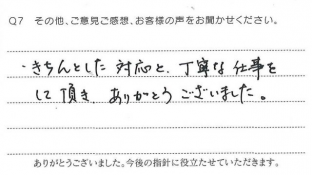 Q7 その他、ご意見ご感想、お客様の声をお聞かせください。
・きちんとした対応と、丁寧な仕事を
して頂き、ありがとうございました。
ありがとうございました。今後の指針に役立たせていただきます。